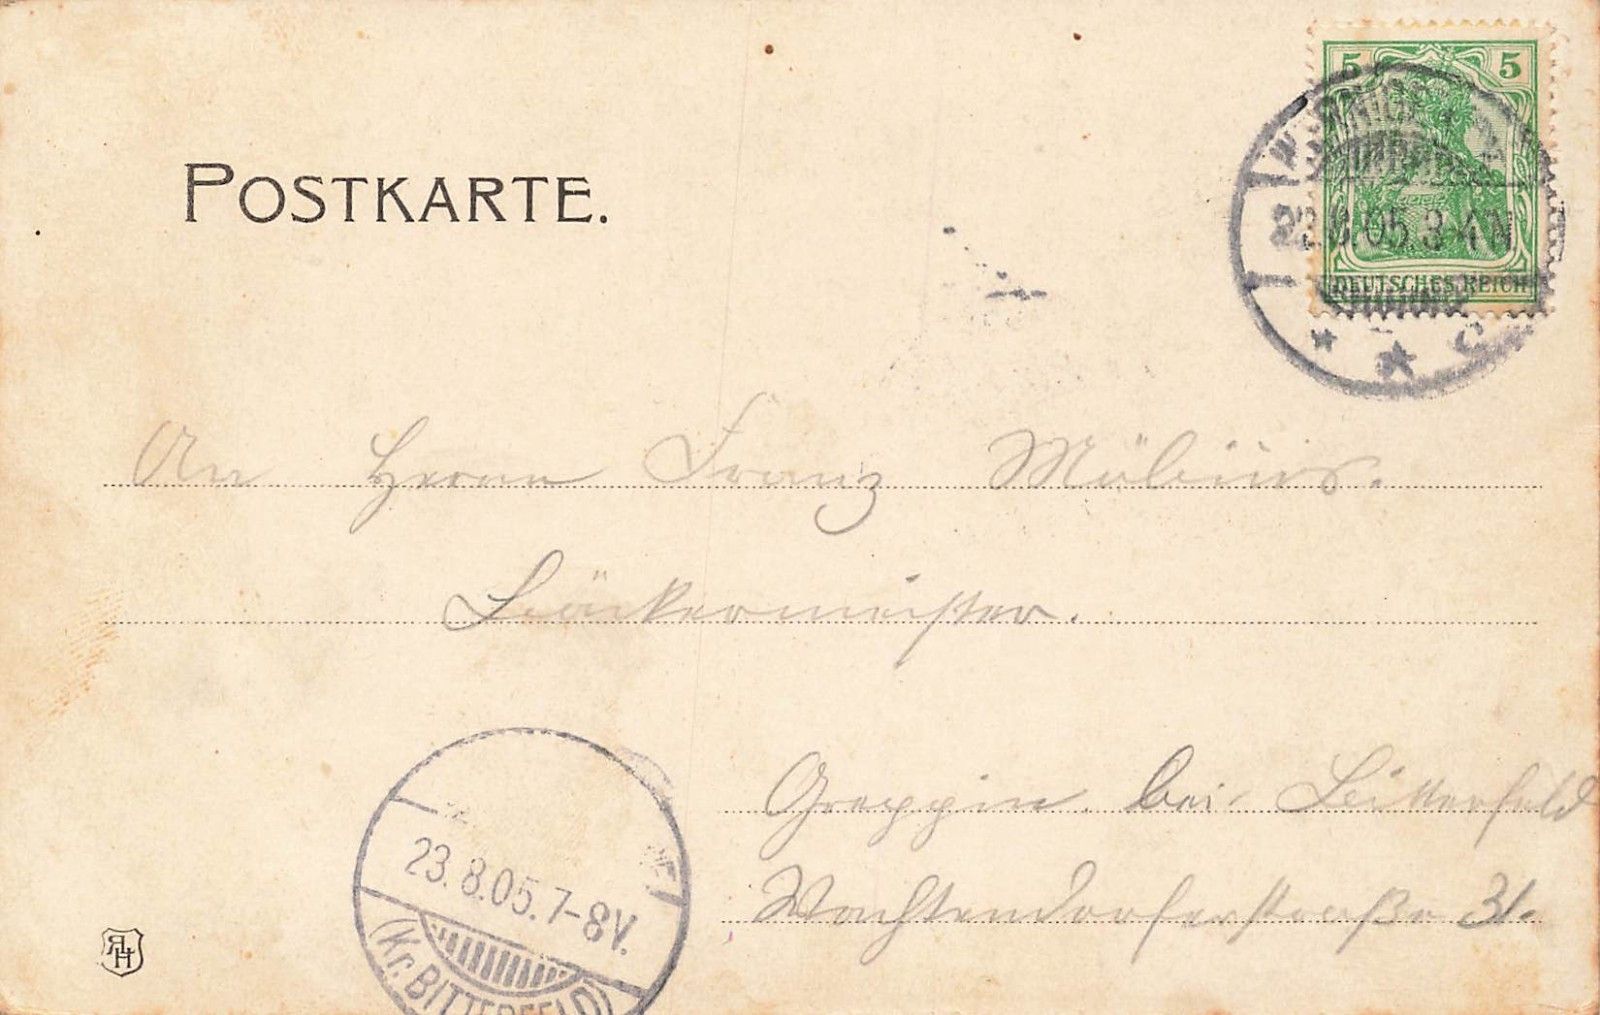 POSTKARTE.
5 5
22.8.05.3-4N
DEUTSCHES REICH
C
An Herrn Franz Möbius.
Bäckermeister.
Greppin bei Bitterfeld
Wachtendorferstraße 31.
23.8.05.7-8V.
(Kr. BITTERFELD)
RH